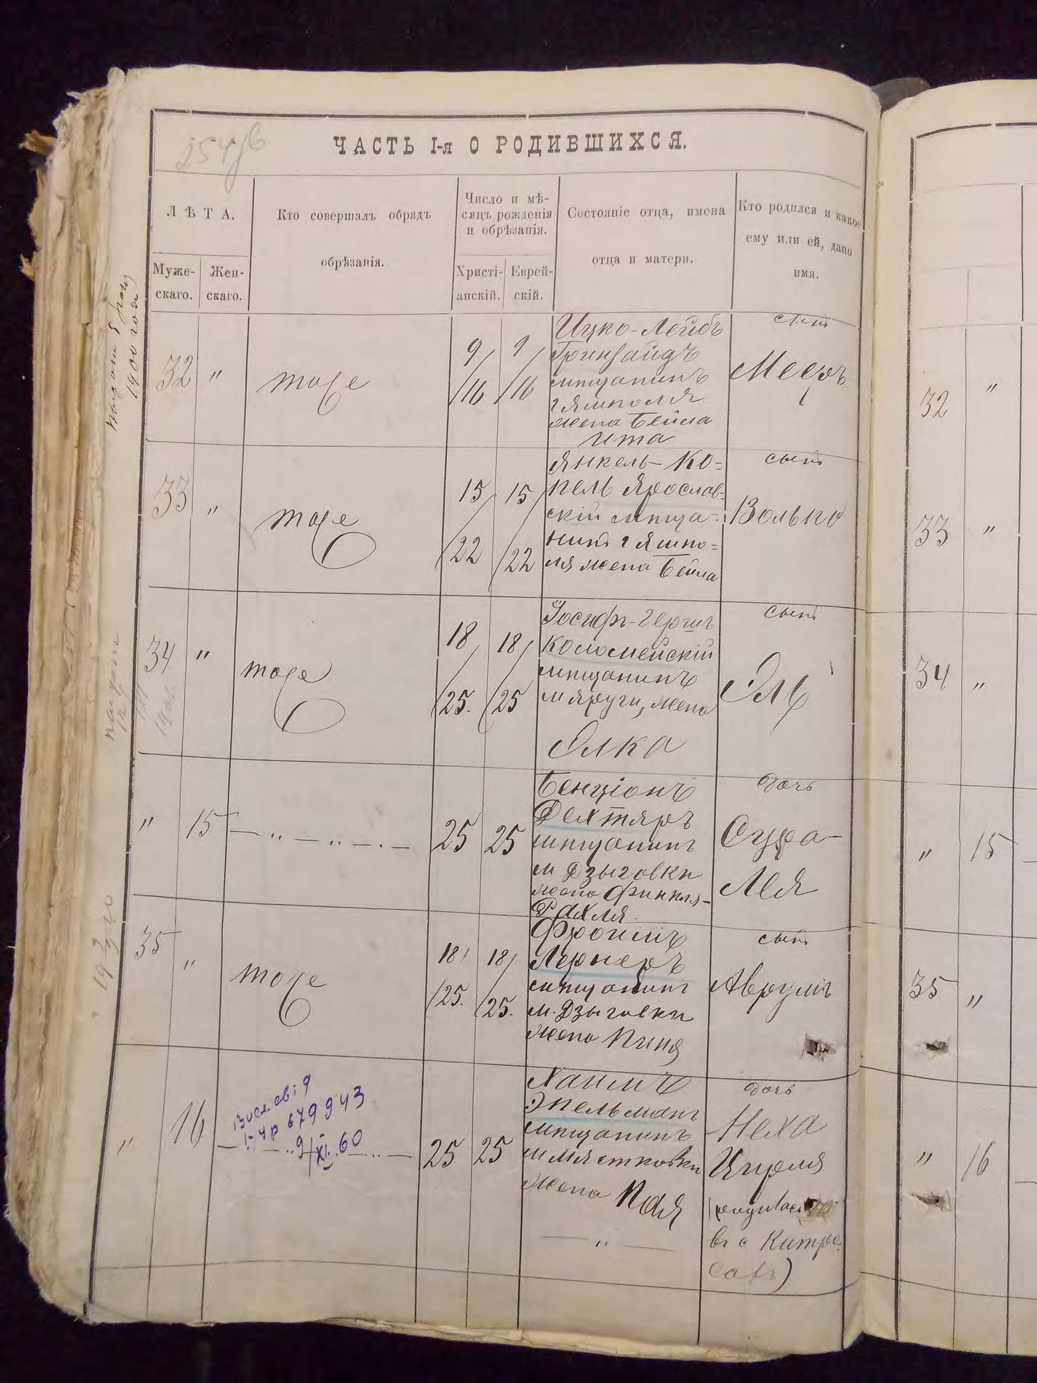 254
ЧАСТЬ I-я О РОДИВШИХСЯ.
ЛѢТА.
Муже-
скаго.
Жен-
скаго.
Кто совершалъ обрядъ
обрѣзанія.
Число и мѣ-
сяцъ рожденія
и обрѣзанія.
Христі-
анскій.
Еврей-
скій.
Состояніе отца, имена
отца и матери.
Кто родился и какое
ему или ей, дано
имя.
32 " тоже 9/16 9/16
Ицко-Лейбъ
Гринзайдъ
мѣщанинъ
г Ямполя
жена Бейла
Ита
сынъ
Мееръ
32 "
33 " тоже 15/22 15/22
Янкель-Ко-
пель Ярослав-
скій мѣща-
нинъ г Ямпо-
ля жена Бейла
сынъ
Волько
33 "
34 " тоже 18/25. 18/25
Іосифъ-Гершъ
Коломейскій
мѣщанинъ
м Яруги, жена
Элка
сынъ
Эль
34 "
" 15 — „ — „ — . — 25 25
Бенціонъ
Дехтяръ
мѣщанинъ
м Дзыговки
жена Финкля-
Рахля
дочь
Сура-
Лея
" 15
35 " тоже 18/25. 18/25.
Фроимъ
Лернеръ
мѣщанинъ
м. Дзыговки
жена Пиня
сынъ
Аврумъ
35 "
" 16
679943
9/XI 60
25 25
Хаимъ
Экельманъ
мѣщанинъ
м Мястковки
жена Пая
— „ —
дочь
Неха
Циреля
въ с Китро-
сахъ)
" 16
1900 года